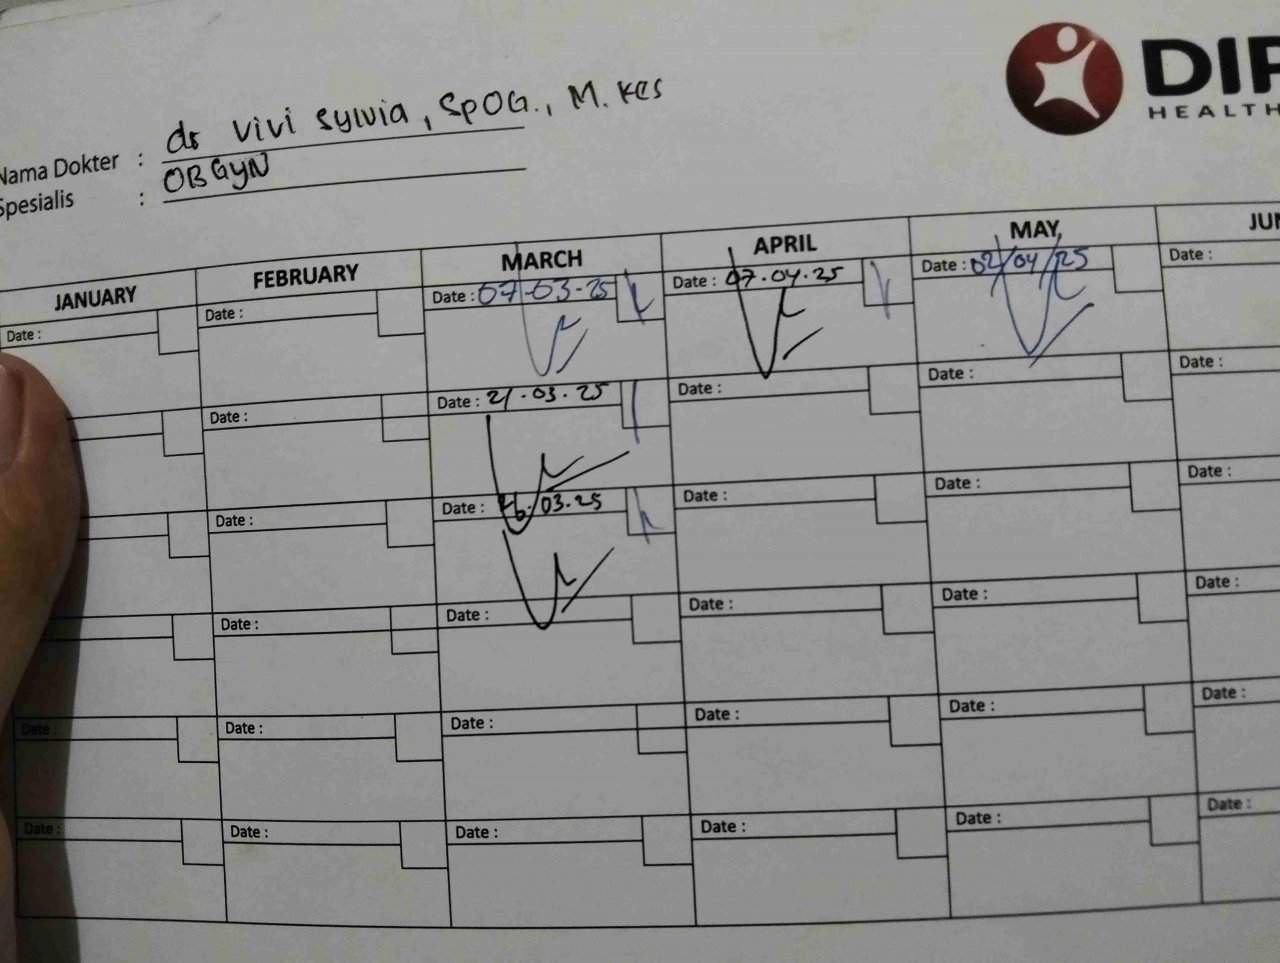 DIP
HEALTH
Nama Dokter : dr Vivi Sylvia, SpOG., M. Kes
Spesialis : OBGYN
JANUARY FEBRUARY MARCH APRIL MAY JUN
Date : Date : Date : 07-03-25 Date : 07.04.25 Date : 02/04/25 Date :
Date : Date : 21.03.25 Date : Date : Date :
Date : Date : 26.03.25 Date : Date : Date :
Date : Date : Date : Date : Date :
Date : Date : Date : Date : Date : Date :
Date : Date : Date : Date : Date : Date :